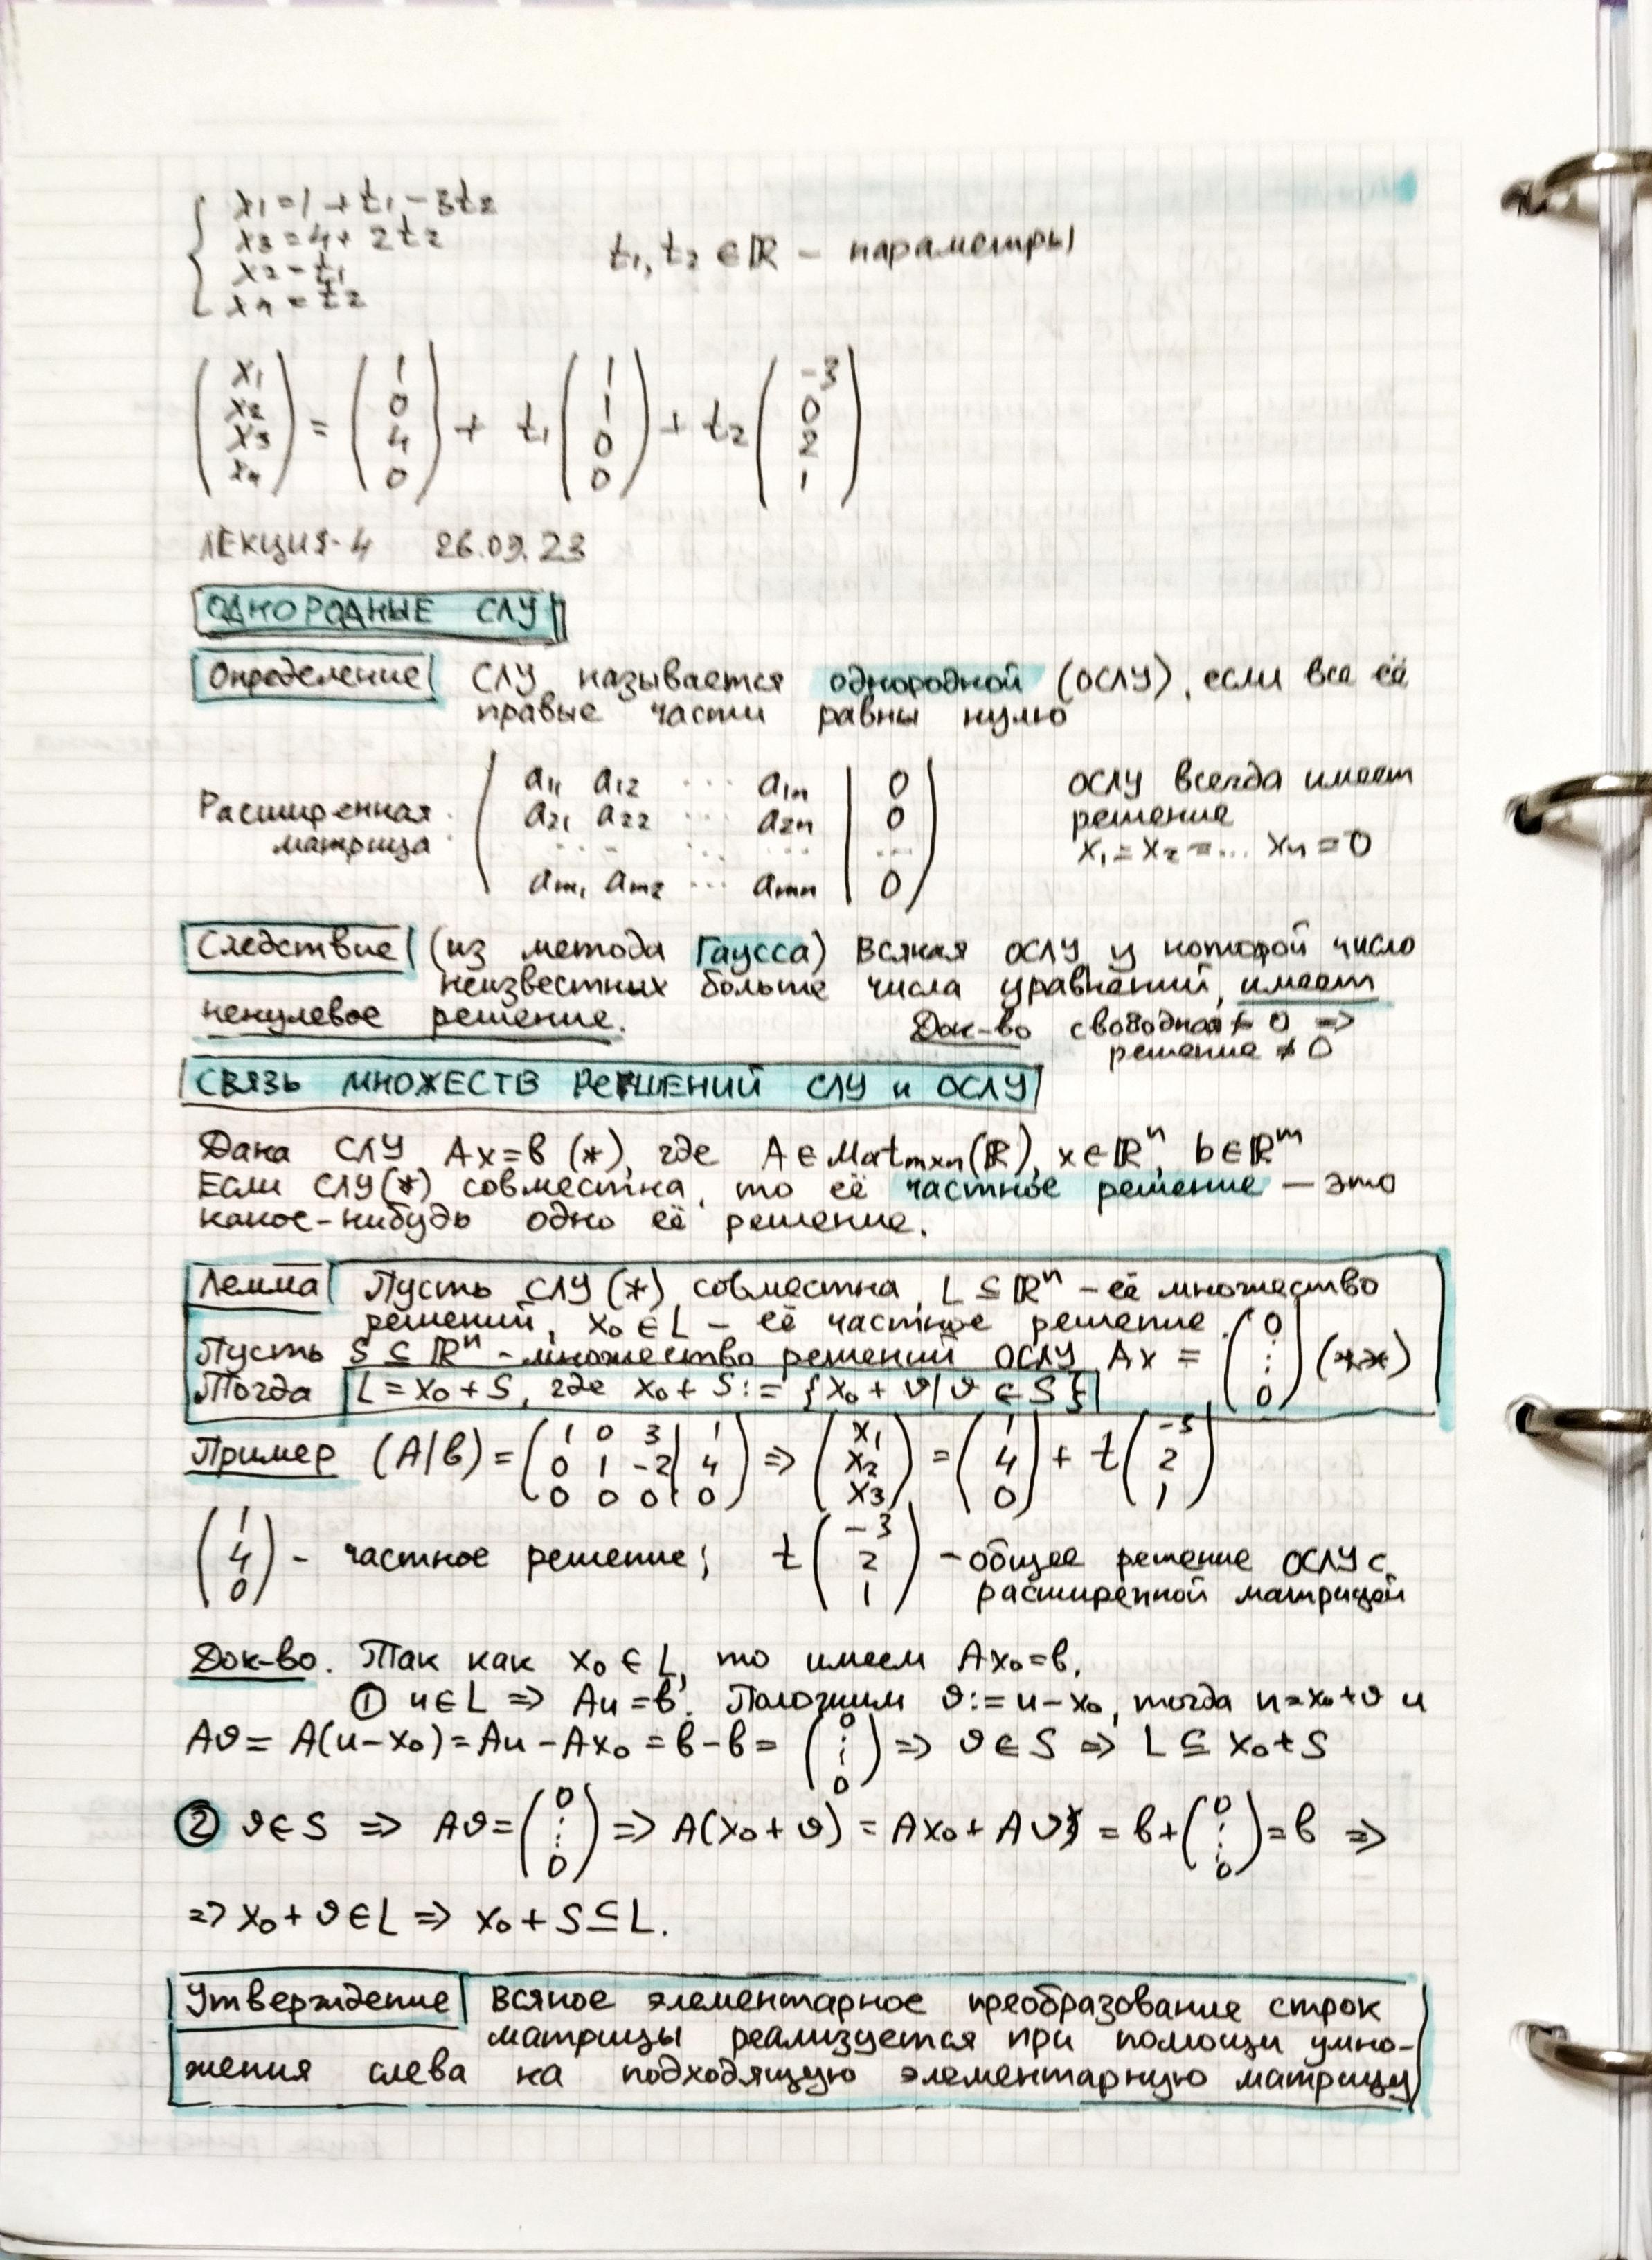 { x₁ = 1 + t₁ - 3t₂
x₃ = 4 + 2t₂
x₂ = t₁
x₄ = t₂
t₁, t₂ ∈ ℝ - параметры
(x₁ x₂ x₃ x₄) = (1 0 4 0) + t₁ (1 1 0 0) + t₂ (-3 0 2 1)
ЛЕКЦИЯ-4 26.09.23
ОДНОРОДНЫЕ СЛУ
Определение СЛУ называется однородной (ОСЛУ), если все её
правые части равны нулю
Расширенная
матрица:
( a₁₁ a₁₂ ... a₁ₙ | 0 )
( a₂₁ a₂₂ ... a₂ₙ | 0 )
( ... ... ... ... | ... )
( aₘ₁ aₘ₂ ... aₘₙ | 0 )
ОСЛУ всегда имеет
решение
x₁ = x₂ = ... xₙ = 0
Следствие (из метода Гаусса) Всякая ОСЛУ у которой число
неизвестных больше числа уравнений, имеет
ненулевое решение.
Док-во свободная ≠ 0 ⇒
решение ≠ 0
СВЯЗЬ МНОЖЕСТВ РЕШЕНИЙ СЛУ и ОСЛУ
Дана СЛУ Ax = b (*), где A ∈ Matₘₓₙ(ℝ), x ∈ ℝⁿ, b ∈ ℝᵐ
Если СЛУ(*) совместна, то её частное решение — это
какое-нибудь одно её решение.
Лемма Пусть СЛУ (*) совместна, L ⊆ ℝⁿ - её множество
решений, x₀ ∈ L - её частное решение.
Пусть S ⊆ ℝⁿ - множество решений ОСЛУ Ax = (0 ⋮ 0) (**)
Тогда L = x₀ + S, где x₀ + S := {x₀ + v | v ∈ S}
Пример (A|b) = ( 1 0 3 | 1 ; 0 1 -2 | 4 ; 0 0 0 | 0 ) ⇒ (x₁ x₂ x₃) = (1 4 0) + t (-3 2 1)
(1 4 0) - частное решение; t (-3 2 1) - общее решение ОСЛУ с
расширенной матрицей
Док-во. Так как x₀ ∈ L, то имеем Ax₀ = b.
① u ∈ L ⇒ Au = b. Положим v := u - x₀, тогда u = x₀ + v и
Av = A(u - x₀) = Au - Ax₀ = b - b = (0 ⋮ 0) ⇒ v ∈ S ⇒ L ⊆ x₀ + S
② v ∈ S ⇒ Av = (0 ⋮ 0) ⇒ A(x₀ + v) = Ax₀ + Av = b + (0 ⋮ 0) = b ⇒
⇒ x₀ + v ∈ L ⇒ x₀ + S ⊆ L.
Утверждение Всякое элементарное преобразование строк
матрицы реализуется при помощи умно-
жения слева на подходящую элементарную матрицу